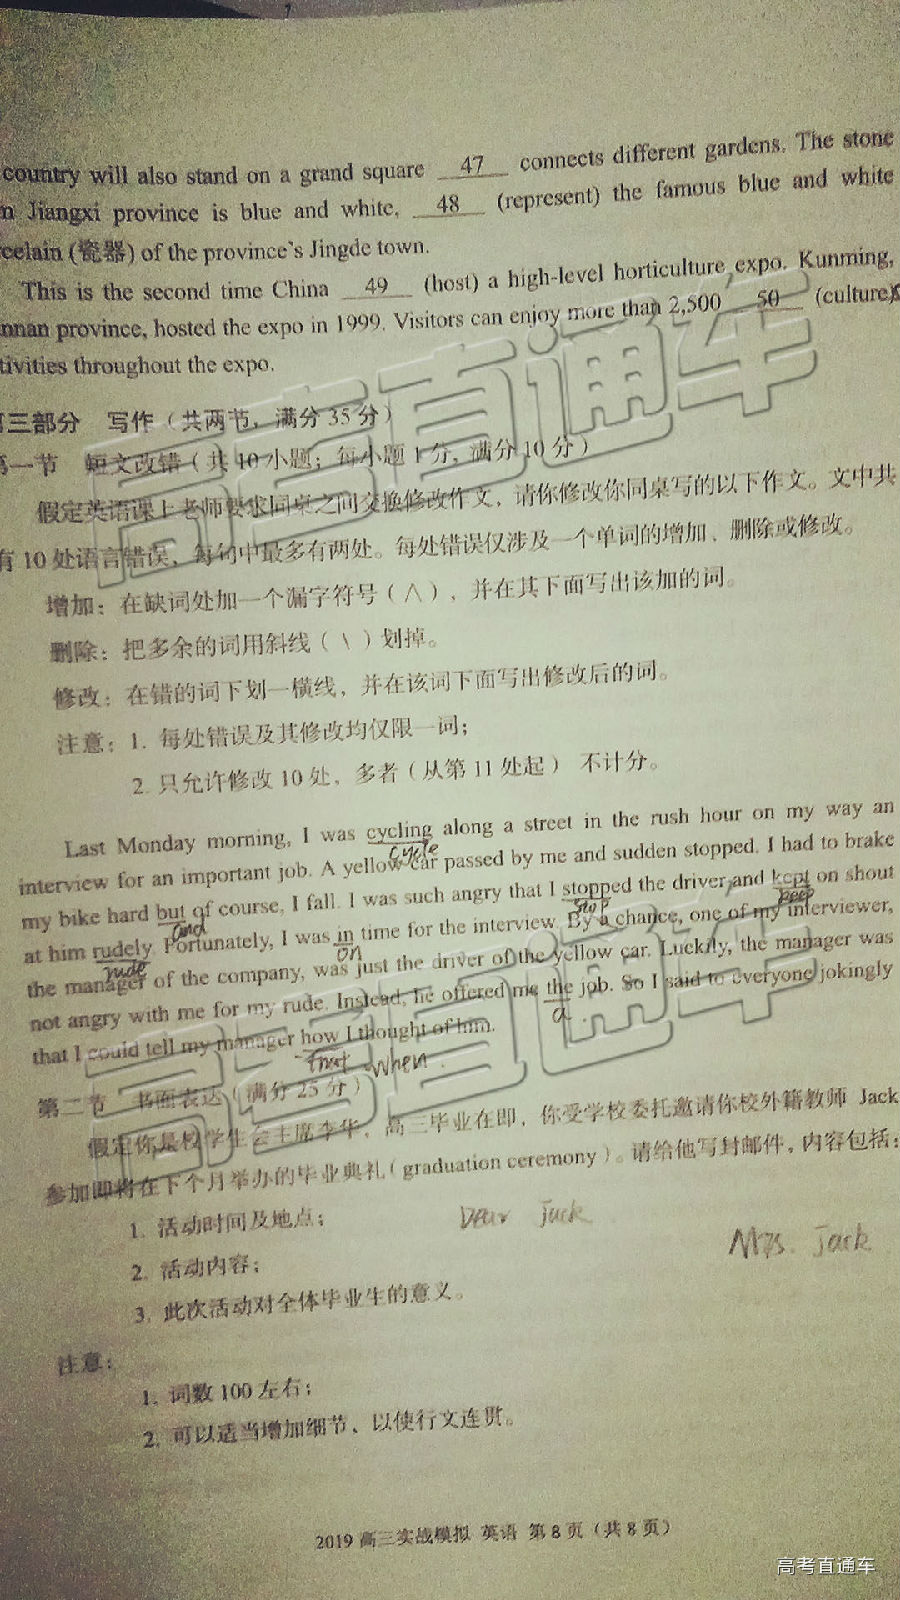 country will also stand on a grand square 47 connects different gardens. The stone
Jiangxi province is blue and white, 48 (represent) the famous blue and white
(瓷器) of the province's Jingde town.
This is the second time China 49 (host) a high-level horticulture expo. Kunming,
province, hosted the expo in 1999. Visitors can enjoy more than 2,500 50 (culture)
throughout the expo.
三部分 写作（共两节，满分 35 分）
第一节 短文改错（共 10 小题；每小题 1 分，满分 10 分）
假定英语课上老师要求同桌之间交换修改作文，请你修改你同桌写的以下作文。文中共
有 10 处语言错误，每句中最多有两处。每处错误仅涉及一个单词的增加、删除或修改。
增加：在缺词处加一个漏字符号（∧），并在其下面写出该加的词。
删除：把多余的词用斜线（\）划掉。
修改：在错的词下划一横线，并在该词下面写出修改后的词。
注意：1. 每处错误及其修改均仅限一词；
2. 只允许修改 10 处，多者（从第 11 处起） 不计分。
Last Monday morning, I was cycling along a street in the rush hour on my way an
cycle
interview for an important job. A yellow car passed by me and sudden stopped. I had to brake
my bike hard but of course, I fall. I was such angry that I stopped the driver and kept on shout
and stop keep
at him rudely. Fortunately, I was in time for the interview. By a chance, one of my interviewer,
rude on
the manager of the company, was just the driver of the yellow car. Luckily, the manager was
not angry with me for my rude. Instead, he offered me the job. So I said to everyone jokingly
a
that I could tell my manager how I thought of him.
that when
第二节 书面表达（满分 25 分）
假定你是校学生会主席李华，高三毕业在即，你受学校委托邀请你校外籍教师 Jack
参加即将在下个月举办的毕业典礼（graduation ceremony）。请给他写封邮件，内容包括：
1. 活动时间及地点；
Dear Jack
Mrs. Jack
2. 活动内容；
3. 此次活动对全体毕业生的意义。
注意：
1. 词数 100 左右；
2. 可以适当增加细节，以使行文连贯。
2019 高三实战模拟 英语 第 8 页（共 8 页）
高考直通车
高考直通车
高考直通车